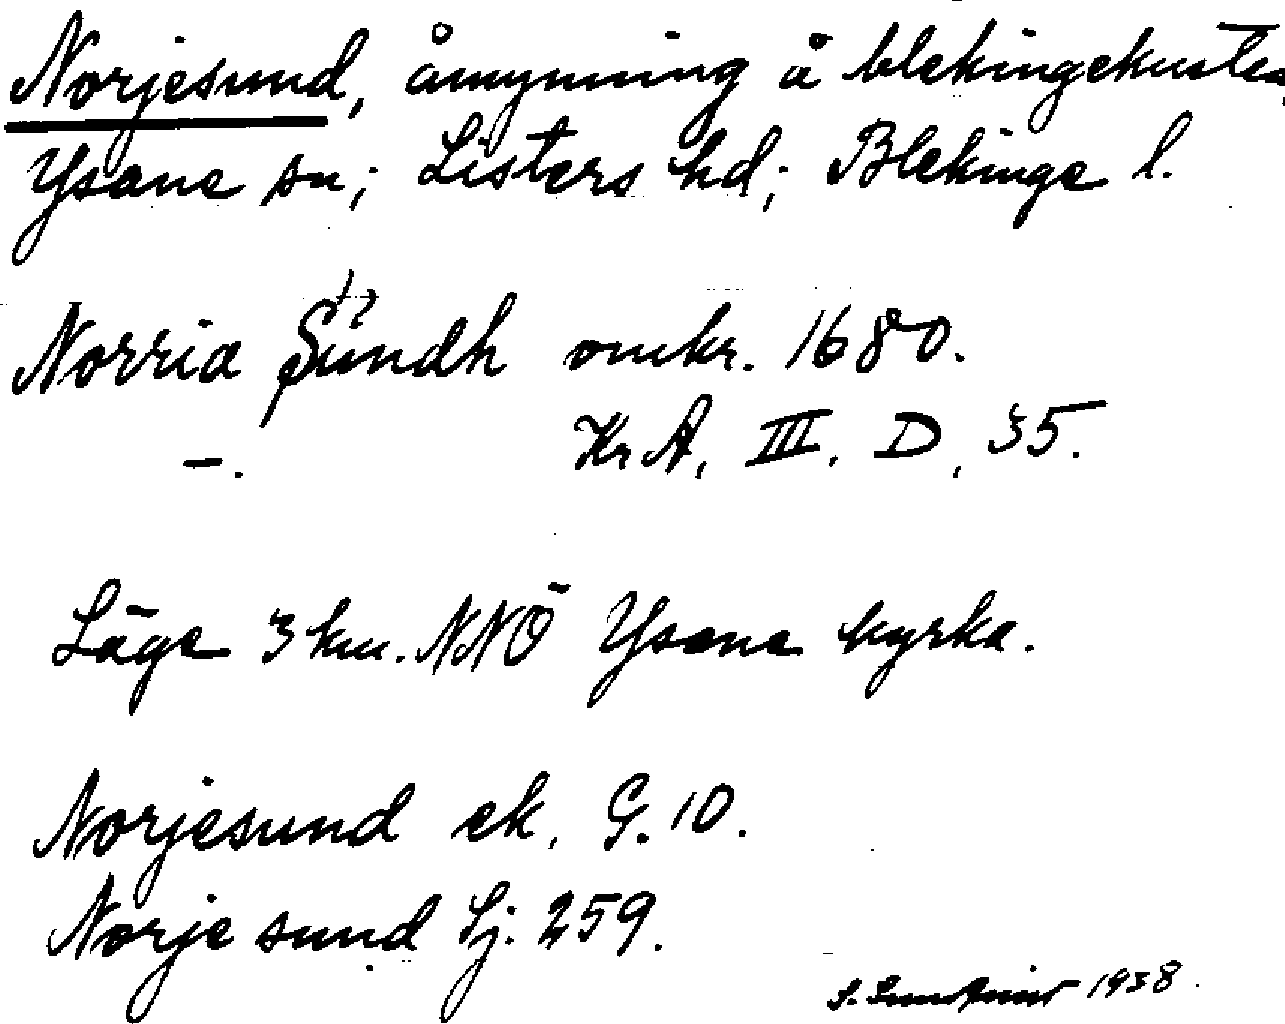 Norjesund, åmynning å blekingekusten
Ysane sn; Listers hd; Blekinge l.
Norria Sundh omkr. 1680.
–. KrA, III. D, 35.
Läge 3 km. NNÖ Ysane kyrka.
Norjesund ek. G. 10.
Norje sund Sj. 259.
S. 1938.